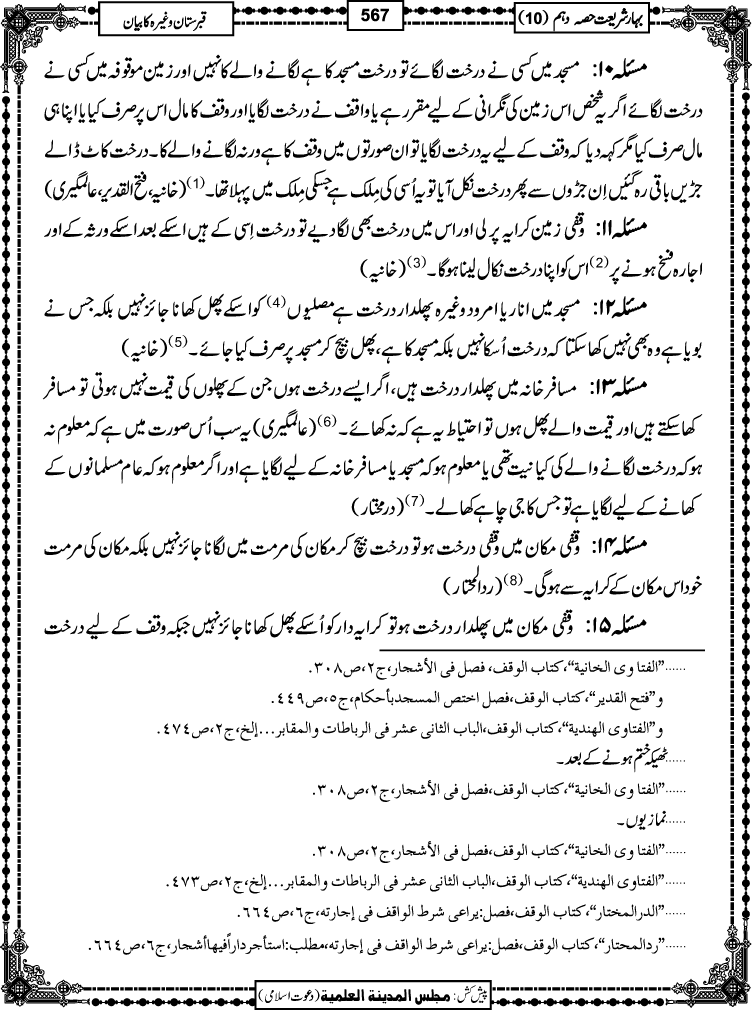 بہارِ شریعت حصہ دہم (10)
567
قبرستان وغیرہ کا بیان
مسئلہ ۱۰: مسجد میں کسی نے درخت لگائے تو درخت مسجد کا ہے لگانے والے کا نہیں اور زمین موقوفہ میں کسی نے
درخت لگائے اگر یہ شخص اس زمین کی نگرانی کے لیے مقرر ہے یا واقف نے درخت لگایا اور وقف کا مال اس پر صرف کیا یا اپنا ہی
مال صرف کیا مگر کہہ دیا کہ وقف کے لیے یہ درخت لگایا تو ان صورتوں میں وقف کا ہے ورنہ لگانے والے کا۔ درخت کاٹ ڈالے
جڑیں باقی رہ گئیں اِن جڑوں سے پھر درخت نکل آیا تو یہ اُسی کی مِلک ہے جسکی مِلک میں پہلا تھا۔(1) (خانیہ، فتح القدیر، عالمگیری)
مسئلہ ۱۱: وقفی زمین کرایہ پر لی اور اس میں درخت بھی لگا دیے تو درخت اِسی کے ہیں اسکے بعد اسکے ورثہ کے اور
اجارہ فسخ ہونے پر(2) اس کو اپنا درخت نکال لینا ہوگا۔(3) (خانیہ)
مسئلہ ۱۲: مسجد میں انار یا امرود وغیرہ پھلدار درخت ہے مصلیوں(4) کو اسکے پھل کھانا جائز نہیں بلکہ جس نے
بویا ہے وہ بھی نہیں کھا سکتا کہ درخت اُسکا نہیں بلکہ مسجد کا ہے، پھل بیچ کر مسجد پر صرف کیا جائے۔(5) (خانیہ)
مسئلہ ۱۳: مسافر خانہ میں پھلدار درخت ہیں، اگر ایسے درخت ہوں جن کے پھلوں کی قیمت نہیں ہوتی تو مسافر
کھا سکتے ہیں اور قیمت والے پھل ہوں تو احتیاط یہ ہے کہ نہ کھائے۔(6) (عالمگیری) یہ سب اُس صورت میں ہے کہ معلوم نہ
ہو کہ درخت لگانے والے کی کیا نیت تھی یا معلوم ہو کہ مسجد یا مسافر خانہ کے لیے لگایا ہے اور اگر معلوم ہو کہ عام مسلمانوں کے
کھانے کے لیے لگایا ہے تو جس کا جی چاہے کھالے۔(7) (درمختار)
مسئلہ ۱۴: وقفی مکان میں وقفی درخت ہو تو درخت بیچ کر مکان کی مرمت میں لگانا جائز نہیں بلکہ مکان کی مرمت
خود اس مکان کے کرایہ سے ہوگی۔(8) (ردالمحتار)
مسئلہ ۱۵: وقفی مکان میں پھلدار درخت ہو تو کرایہ دار کو اُسکے پھل کھانا جائز نہیں جبکہ وقف کے لیے درخت
......”الفتاوی الخانية“،کتاب الوقف، فصل فی الأشجار،ج۲،ص۳۰۸.
و”فتح القدير“،كتاب الوقف،فصل اختص المسجدبأحكام،ج۵،ص۴۴۹.
و”الفتاوى الهندية“،كتاب الوقف،الباب الثانی عشر فی الرباطات والمقابر...إلخ،ج۲،ص۴۷۴.
......ٹھیکہ ختم ہونے کے بعد۔
......”الفتاوی الخانية“،کتاب الوقف،فصل فی الأشجار،ج۲،ص۳۰۸.
......نمازیوں۔
......”الفتاوی الخانية“،کتاب الوقف،فصل فی الأشجار،ج۲،ص۳۰۸.
......”الفتاوى الهندية“،كتاب الوقف،الباب الثانی عشر فی الرباطات والمقابر...إلخ،ج۲،ص۴۷۳.
......”الدرالمختار“،كتاب الوقف،فصل:يراعى شرط الواقف فی إجارته،ج۶،ص۶۶۴.
......”ردالمحتار“،كتاب الوقف،فصل:يراعى شرط الواقف فی إجارته،مطلب:استأجرداراًفيهاأشجار،ج۶،ص۶۶۴.
پیش کش: مجلس المدینة العلمیة (دعوتِ اسلامی)